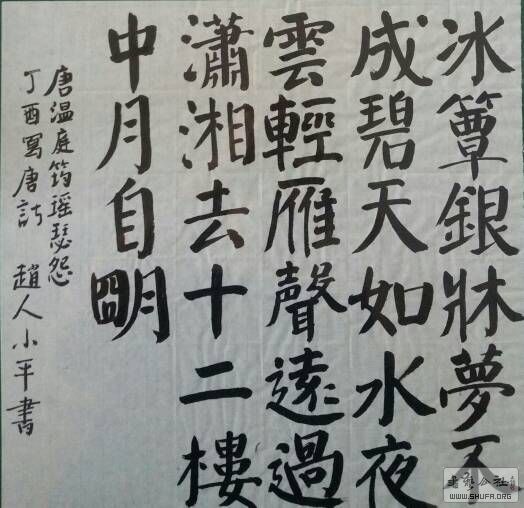 冰簟銀牀夢不
成碧天如水夜
雲輕雁聲遠過
瀟湘去十二樓
中月自朙
唐温庭筠瑶瑟怨
丁酉寫唐詩 趙人小平書
書藝公社
WWW.SHUFA.ORG